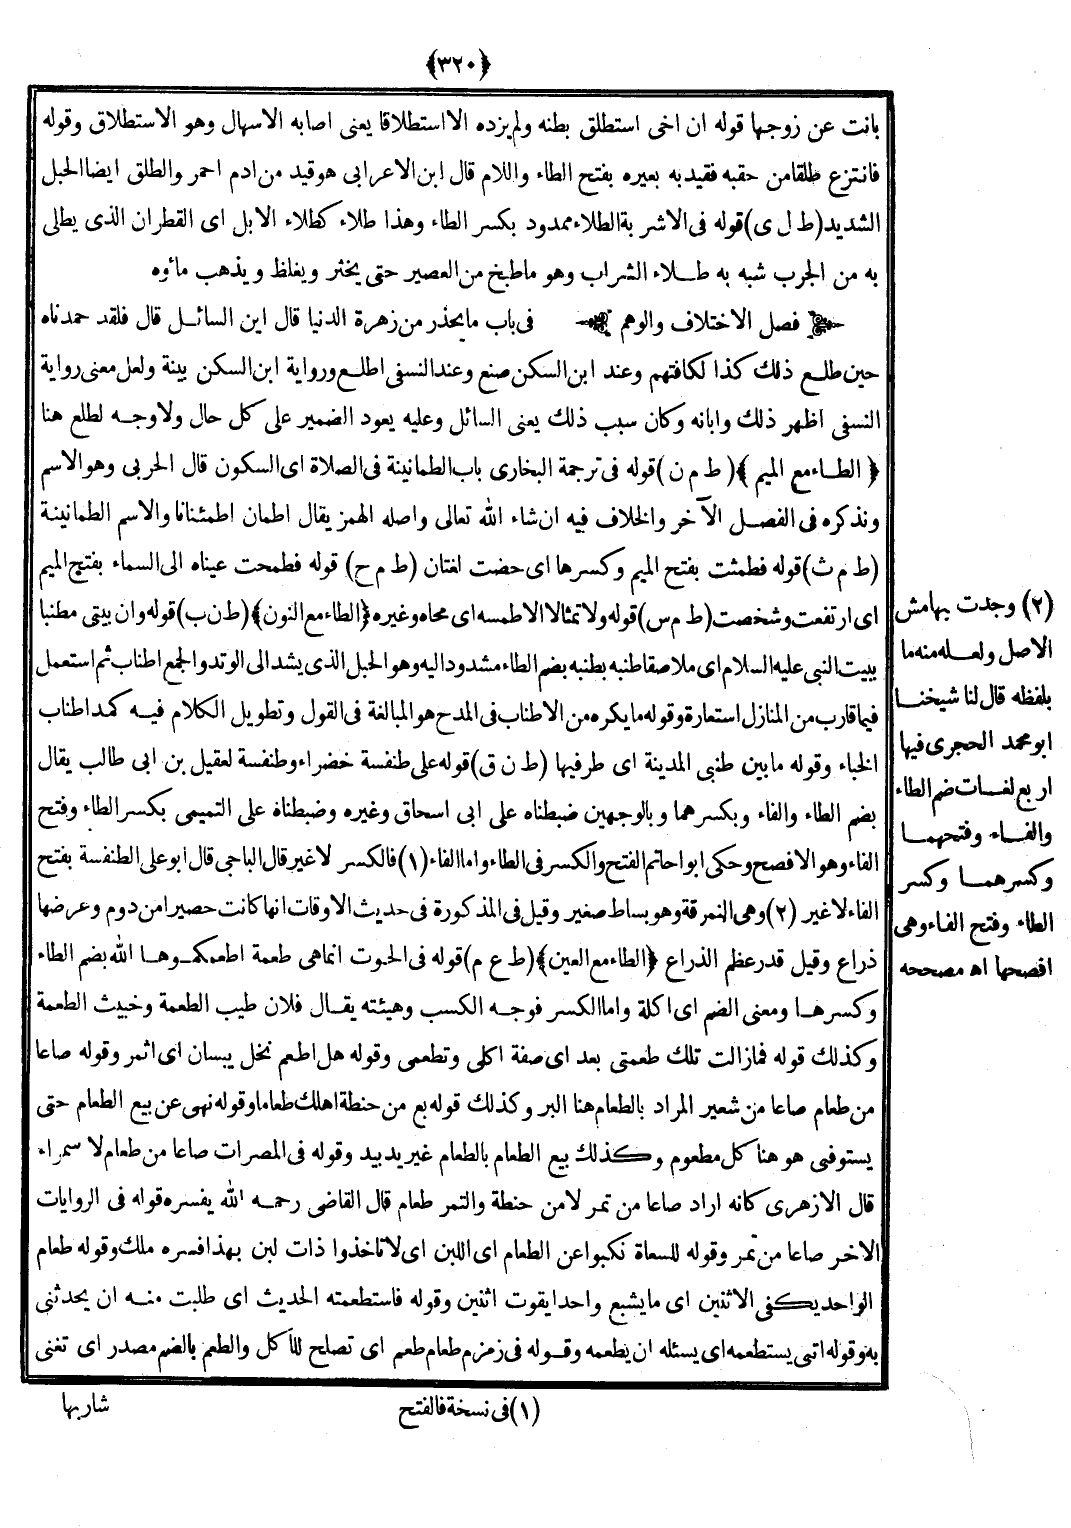 ﴿٣٢٠﴾
بانت عن زوجها قوله ان اخى استطلق بطنه ولم يزده الا استطلاقا يعنى اصابه الاسهال وهو الاستطلاق وقوله
فانتزع طلقا من حقبه فقيد به بعيره بفتح الطاء واللام قال ابن الاعرابى هو قيد من ادم احمر والطلق ايضا الحبل
الشديد (ط ل ى) قوله فى الاشربة الطلاء ممدود بكسر الطاء وهذا طلاء كطلاء الابل اى القطران الذى يطلى
به من الجرب شبه به طلاء الشراب وهو ما طبخ من العصير حتى يخثر ويغلظ ويذهب ماؤه
فصل الاختلاف والوهم فى باب ما يحذر من زهرة الدنيا قال اين السائل قال فلقد حمدناه
حين طلع ذلك كذا لكافتهم وعند ابن السكن صنع وعند النسفى اطلع ورواية ابن السكن بينة ولعل معنى رواية
النسفى اظهر ذلك وابانه وكان سبب ذلك يعنى السائل وعليه يعود الضمير على كل حال ولا وجه لطلع هنا
﴿ الطاء مع الميم ﴾ (ط م ن) قوله فى ترجمة البخارى باب الطمانينة فى الصلاة اى السكون قال الحربى وهو الاسم
ونذكره فى الفصل الآخر والخلاف فيه ان شاء الله تعالى واصله الهمز يقال اطمان اطمئنانا والاسم الطمانينة
(ط م ث) قوله فطمثت بفتح الميم وكسرها اى حضت لغتان (ط م ح) قوله فطمحت عيناه الى السماء بفتح الميم
اى ارتفعت وشخصت (ط م س) قوله ولا تمثالا الا طمسه اى محاه وغيره ﴿الطاء مع النون﴾ (ط ن ب) قوله وان بيتى مطنبا
ببيت النبى عليه السلام اى ملاصقا طنبه بطنبه بضم الطاء مشدودا اليه وهو الحبل الذى يشد الى الوتد والجمع اطناب ثم استعمل
فيما قارب من المنازل استعارة وقوله ما يكره من الاطناب فى المدح هو المبالغة فى القول وتطويل الكلام فيه كمد اطناب
الخباء وقوله ما بين طنبى المدينة اى طرفيها (ط ن ق) قوله على طنفسة خضراء وطنفسة لعقيل بن ابى طالب يقال
بضم الطاء والفاء وبكسرهما وبالوجهين ضبطناه على ابى اسحاق وغيره وضبطناه على التميمى بكسر الطاء وفتح
الفاء وهو الافصح وحكى ابو حاتم الفتح والكسر فى الطاء واما الفاء (١) فالكسر لا غير قال الباجى قال ابو على الطنفسة بفتح
الفاء لا غير (٢) وهى النمرقة وهو بساط صغير وقيل فى المذكورة فى حديث الاوقات انها كانت حصيرا من دوم وعرضها
ذراع وقيل قدر عظم الذراع ﴿الطاء مع العين﴾ (ط ع م) قوله فى الحوت انما هى طعمة اطعمكموها الله بضم الطاء
وكسرها ومعنى الضم اى اكلة واما الكسر فوجه الكسب وهيئته يقال فلان طيب الطعمة وخبيث الطعمة
وكذلك قوله فما زالت تلك طعمتى بعد اى صفة اكلى وتطعمى وقوله هل اطعم نخل بيسان اى اثمر وقوله صاعا
من طعام صاعا من شعير المراد بالطعام هنا البر وكذلك قوله بع من حنطة اهلك طعاما وقوله نهى عن بيع الطعام حتى
يستوفى هو هنا كل مطعوم وكذلك بيع الطعام بالطعام غير يد بيد وقوله فى المصرات صاعا من طعام لا سمراء
قال الازهرى كانه اراد صاعا من تمر لا من حنطة والتمر طعام قال القاضى رحمه الله يفسره قوله فى الروايات
الاخر صاعا من تمر وقوله للسعاة نكبوا عن الطعام اى اللبن اى لا تاخذوا ذات لبن بهذا فسره ملك وقوله طعام
الواحد يكفى الاثنين اى ما يشبع واحدا يقوت اثنين وقوله فاستطعمته الحديث اى طلبت منه ان يحدثنى
به وقوله اتى يستطعمه اى يسئله ان يطعمه وقوله فى زمزم طعام طعم اى تصلح للأكل والطعم بالضم مصدر اى تغنى
شاربها
(١) فى نسخة فالفتح
(٢) وجدت بهامش
الاصل ولعله منه ما
بلفظه قال لنا شيخنا
ابو محمد الحجرى فيها
اربع لغات ضم الطاء
والفاء وفتحهما
وكسرهما وكسر
الطاء وفتح الفاء وهى
افصحها اه مصححه